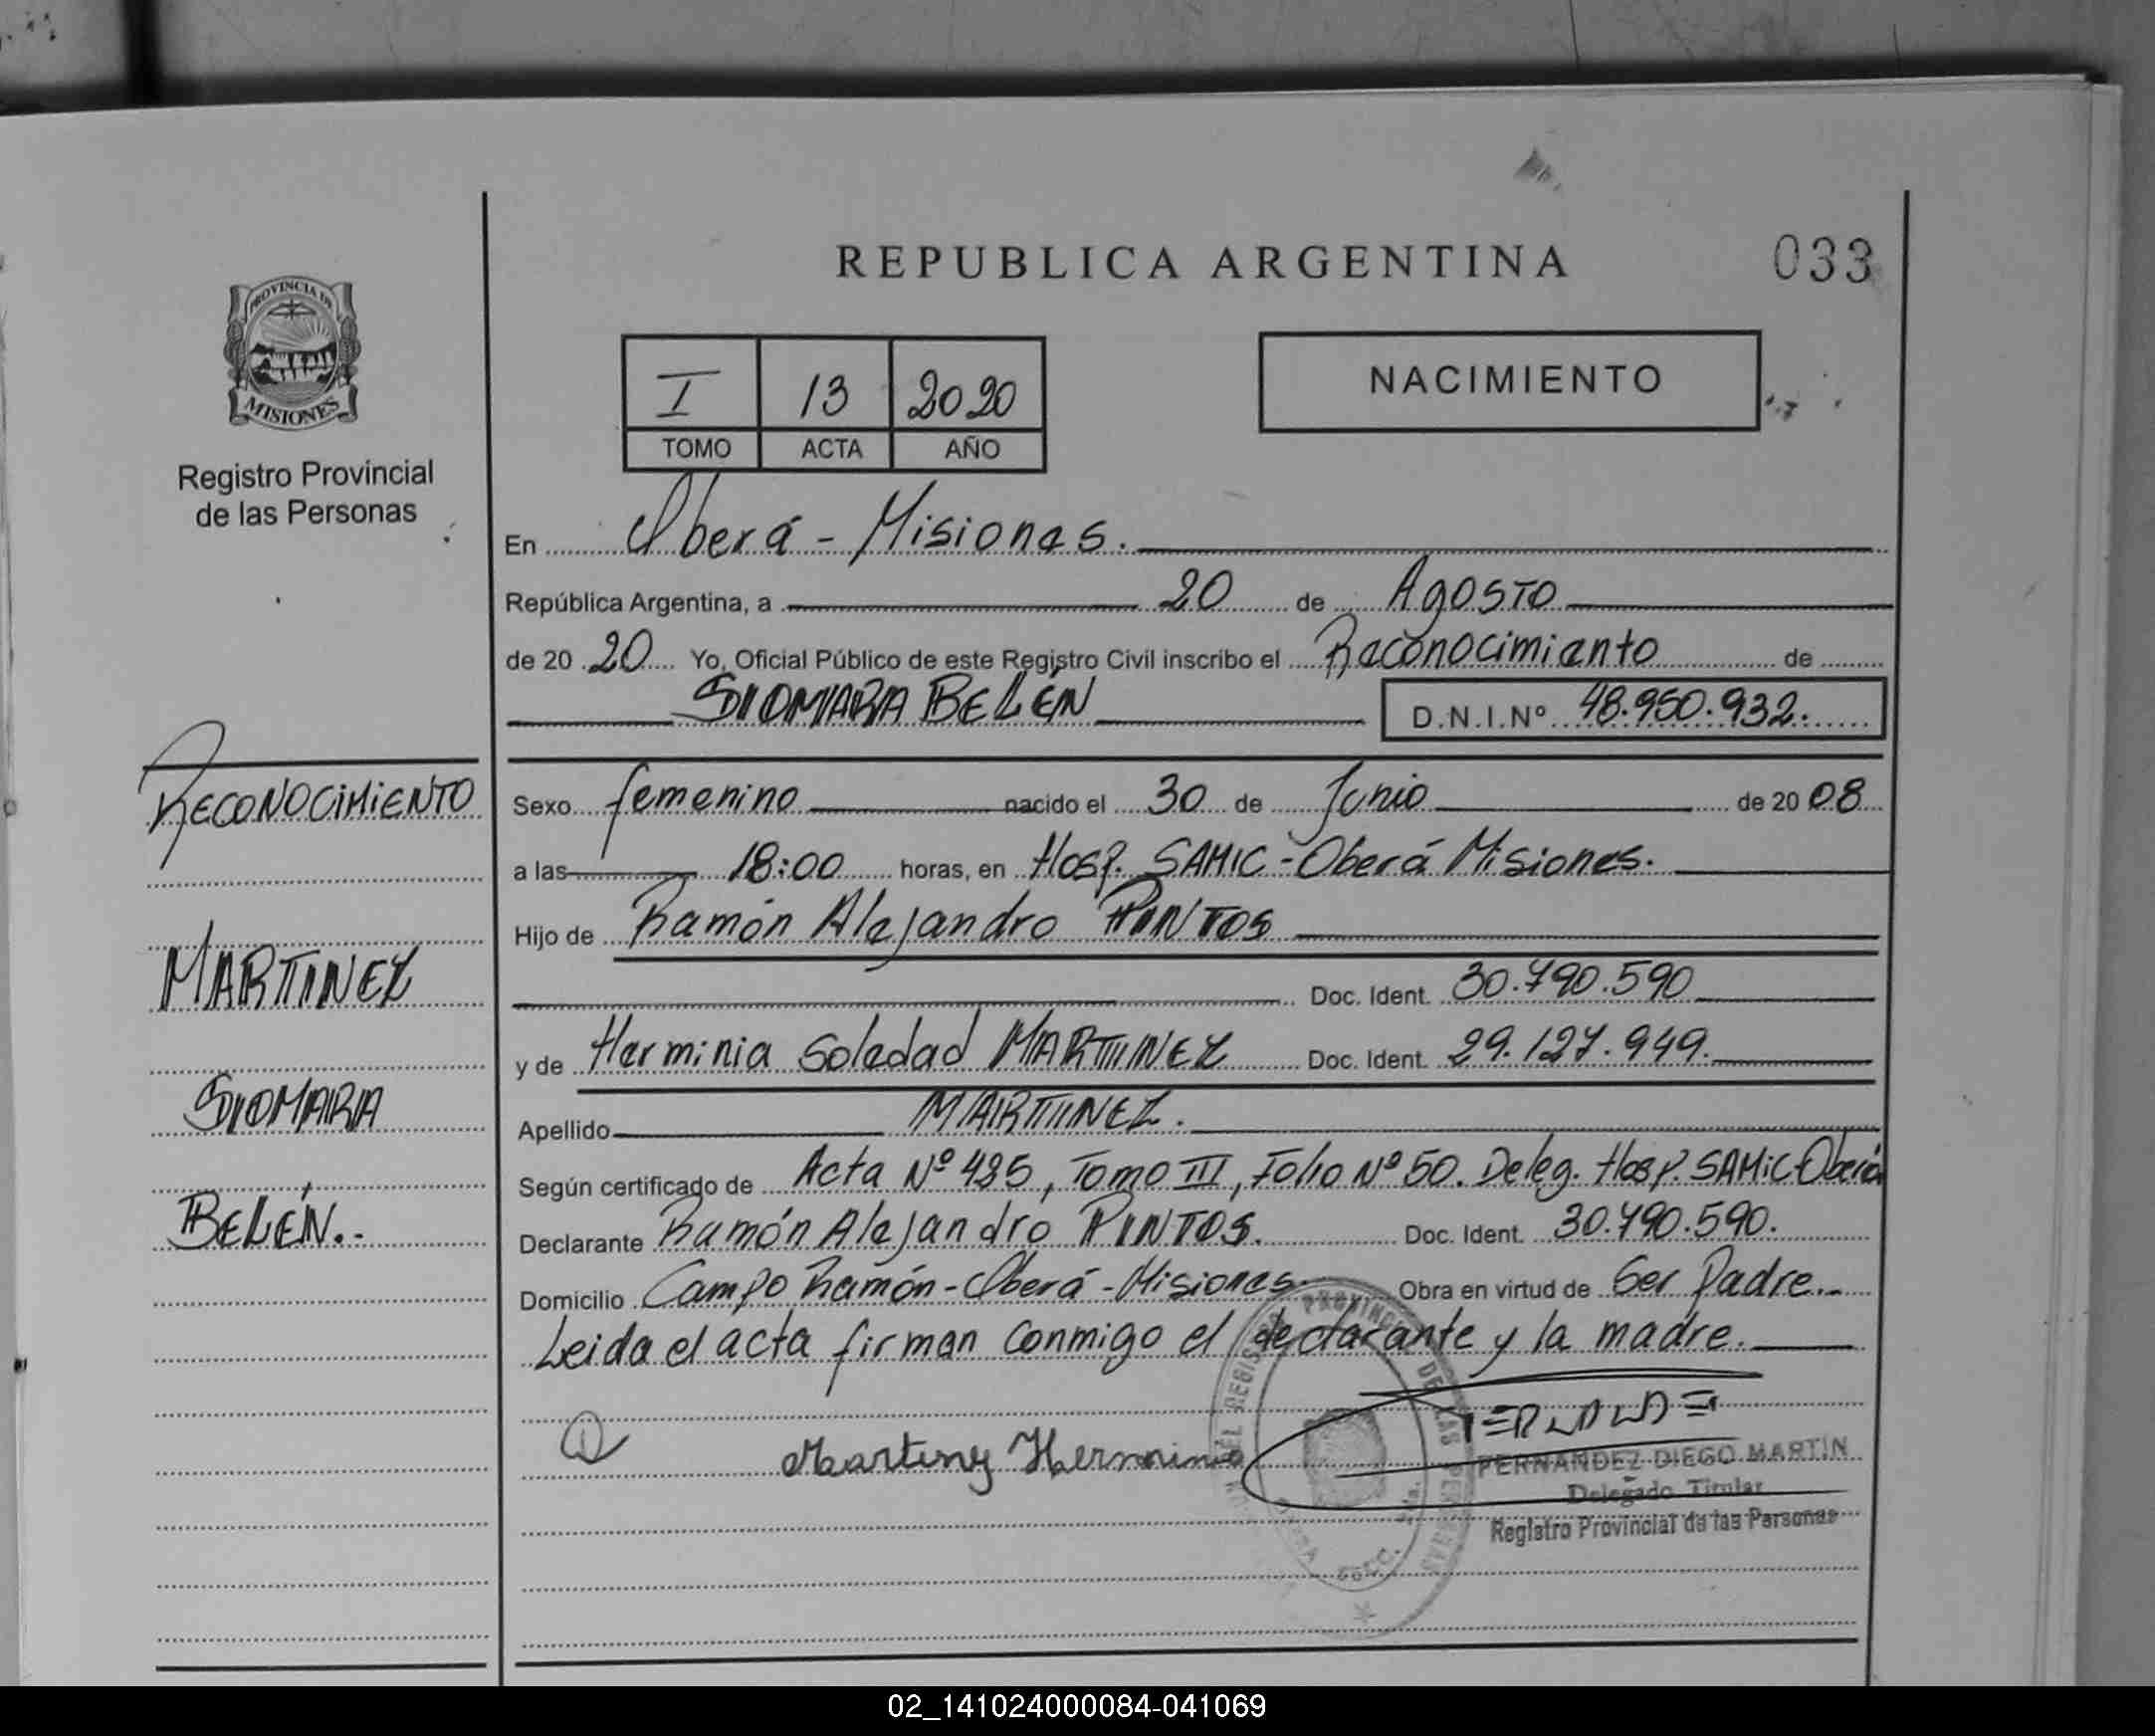 REPUBLICA ARGENTINA
033
PROVINCIA DE
MISIONES
Registro Provincial
de las Personas
I 13 2020
TOMO ACTA AÑO
NACIMIENTO
En Oberá - Misiones.
República Argentina, a 20 de Agosto
de 20 20 Yo, Oficial Público de este Registro Civil inscribo el Reconocimiento de
SIOMARA BELÉN D.N.I.Nº 48.950.932.
RECONOCIMIENTO
MARTINEZ
SIOMARA
BELÉN.-
Sexo femenino nacido el 30 de Junio de 20 08
a las 18:00 horas, en Hosp. SAMIC - Oberá Misiones.
Hijo de Ramón Alejandro PINTOS
Doc. Ident. 30.790.590
y de Herminia Soledad MARTINEZ Doc. Ident. 29.127.949.
Apellido MARTINEZ.
Según certificado de Acta Nº 485, Tomo III, Folio Nº 50. Deleg. Hosp. SAMiC-Oberá
Declarante Ramón Alejandro PINTOS. Doc. Ident. 30.790.590.
Domicilio Campo Ramón - Oberá - Misiones. Obra en virtud de Ser Padre.-
Leida el acta firman conmigo el declarante y la madre.
Martinez Herminia
FERNANDEZ DIEGO MARTIN
Delegado Titular
Registro Provincial de las Personas
02_141024000084-041069